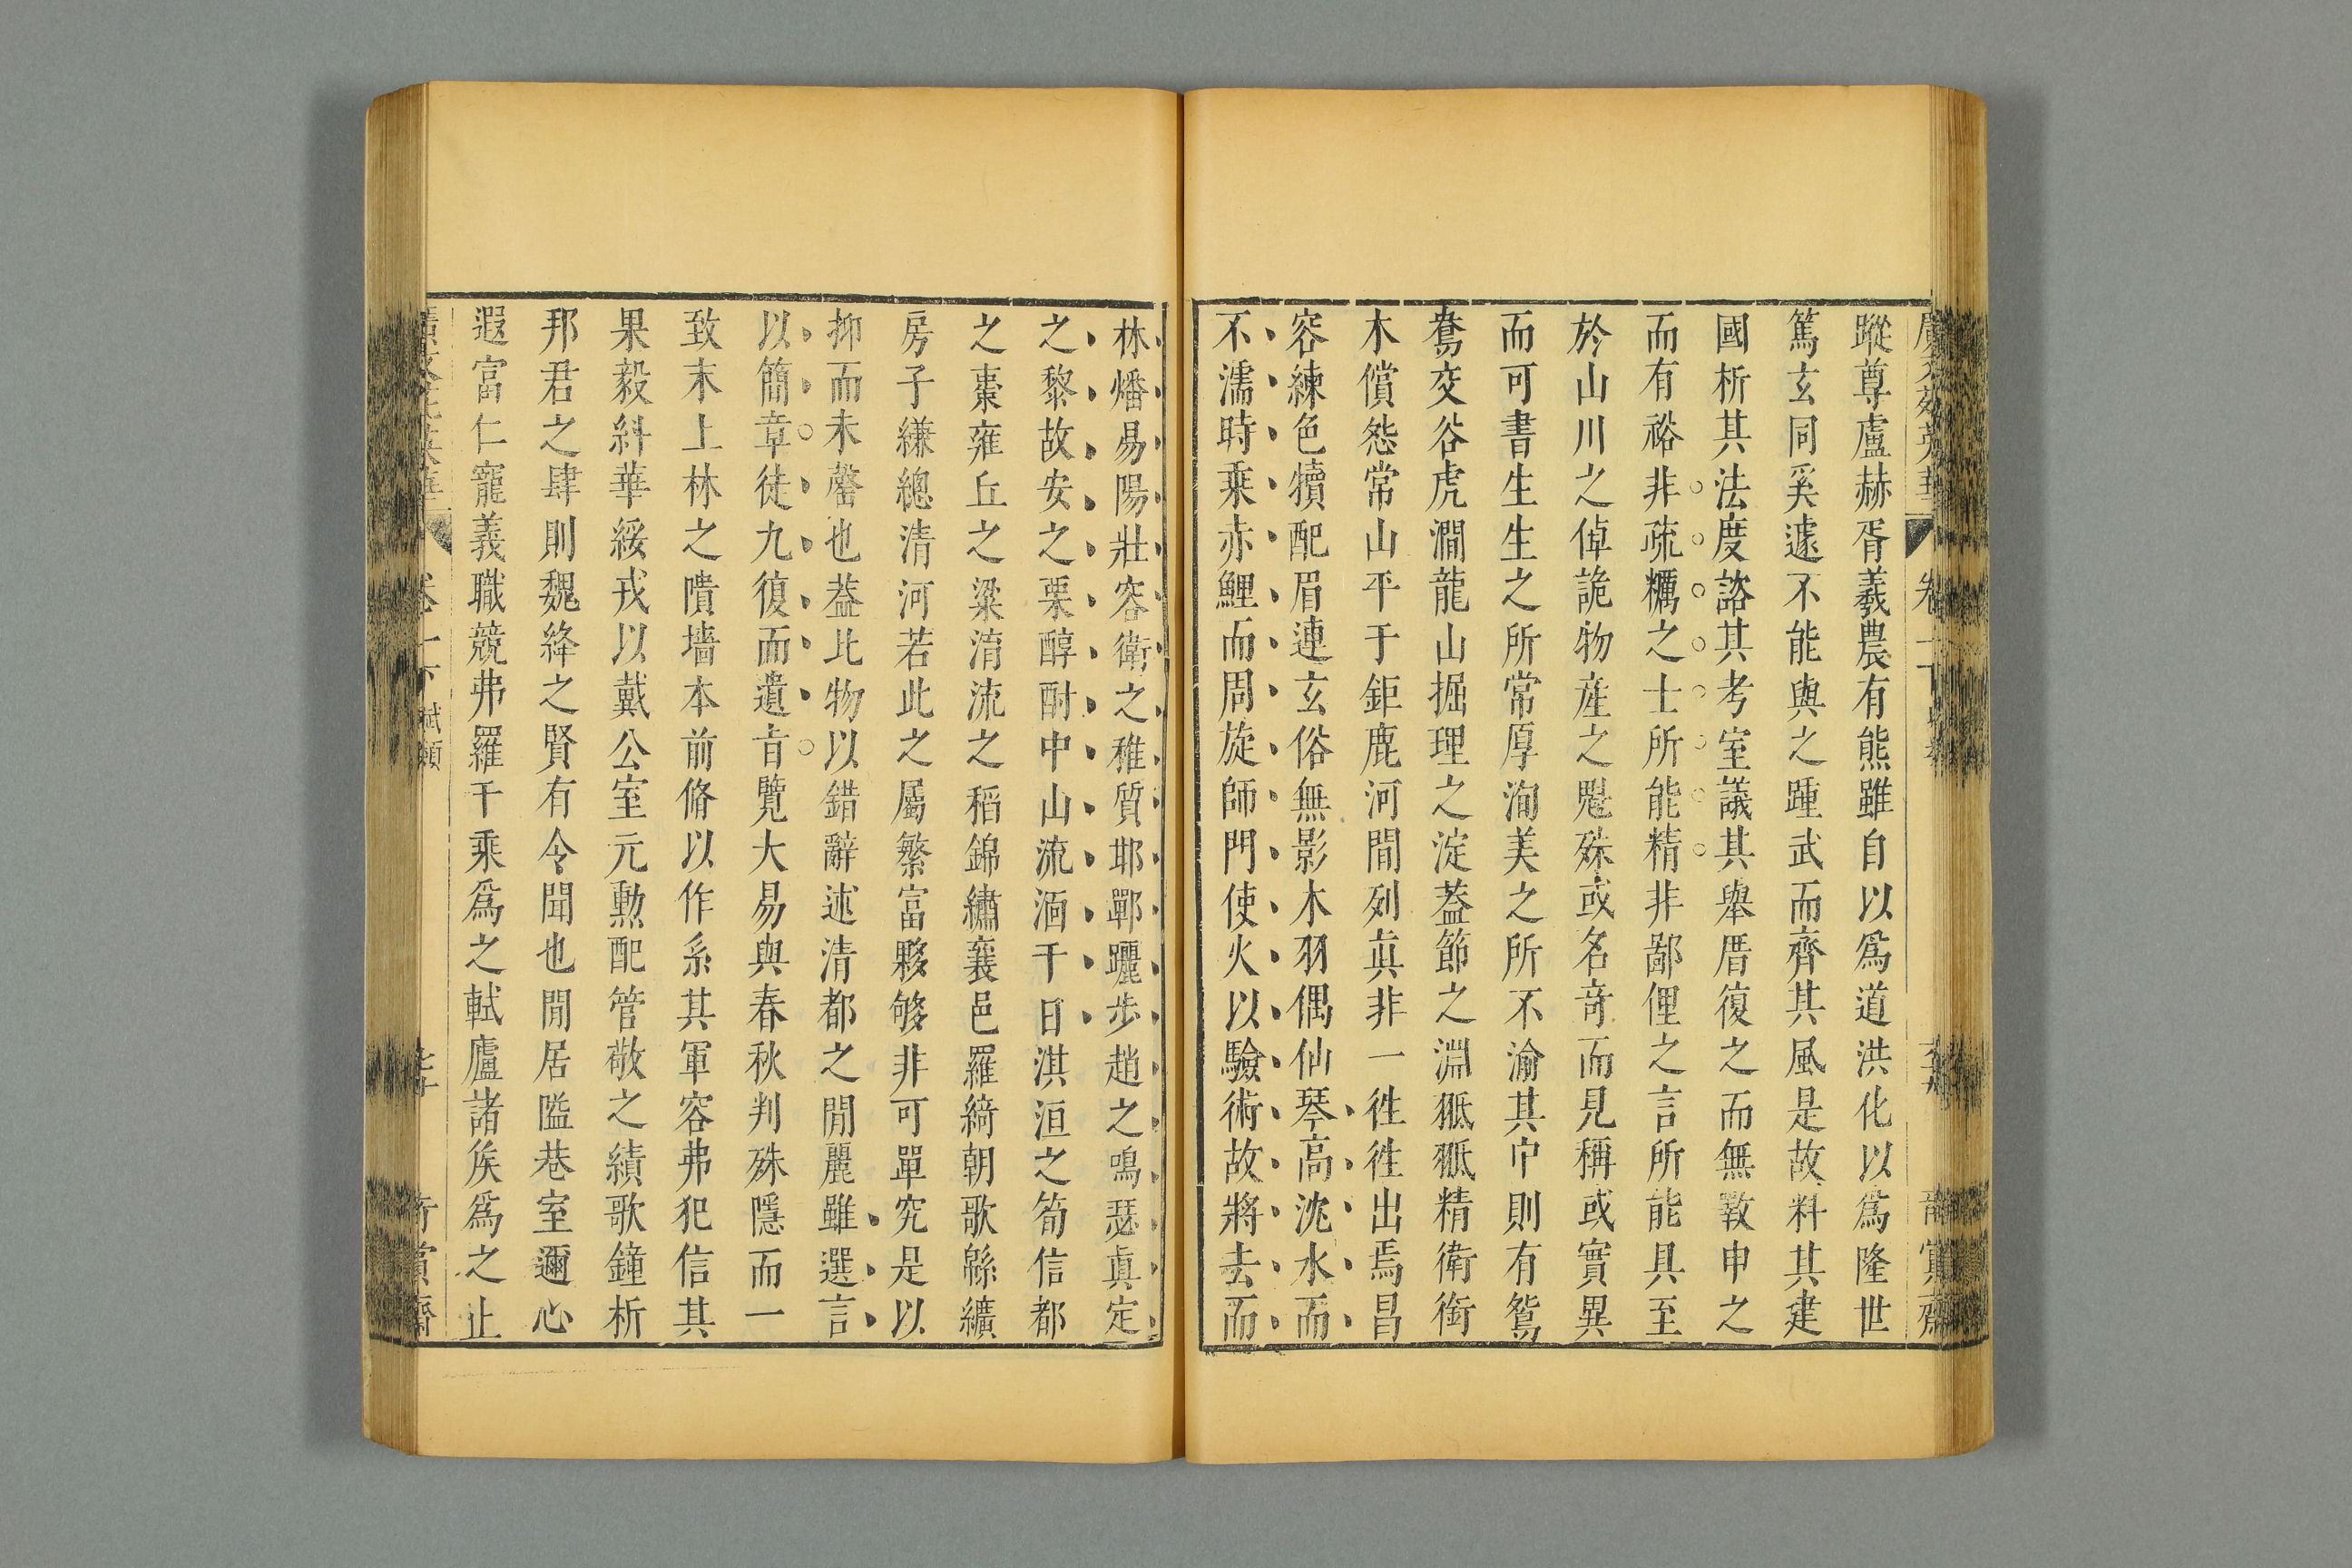 蹤尊盧赫胥羲農有熊雖自以爲道洪化以爲隆世
篤玄同奚遽不能與之踵武而齊其風是故料其建
國析其法度諮其考室議其舉厝復之而無斁申之
而有裕非疏糲之士所能精非鄙俚之言所能具至
於山川之倬詭物産之魁殊或名竒而見稱或實異
而可書生生之所常厚洵美之所不渝其中則有鴛
鴦交谷虎澗龍山掘理之淀葢節之淵𤝜𤝜精衛銜
木償怨常山平干鉅鹿河間列眞非一徃徃出焉昌
容練色犢配眉連玄俗無影木羽偶仙琴高沈水而
不濡時乘赤鯉而周旋師門使火以驗術故將去而
林燔易陽壯容衛之稚質邯鄲躧步趙之鳴瑟眞定
之黎故安之栗醇酎中山流湎千日淇洹之筍信都
之棗雍丘之粱淯流之稻錦繡襄邑羅綺朝歌緜纊
房子縑總清河若此之屬繁富夥够非可單究是以
抑而未罄也葢比物以錯辭述清都之閒麗雖選言
以簡章徒九復而遺旨覽大易與春秋判殊隱而一
致末上林之隤墻本前脩以作系其軍容弗犯信其
果毅糾華綏戎以戴公室元勲配管敬之績歌鐘析
邦君之肆則魏絳之賢有令聞也閒居隘巷室邇心
遐富仁寵義職競弗羅千乘爲之軾廬諸侯爲之止